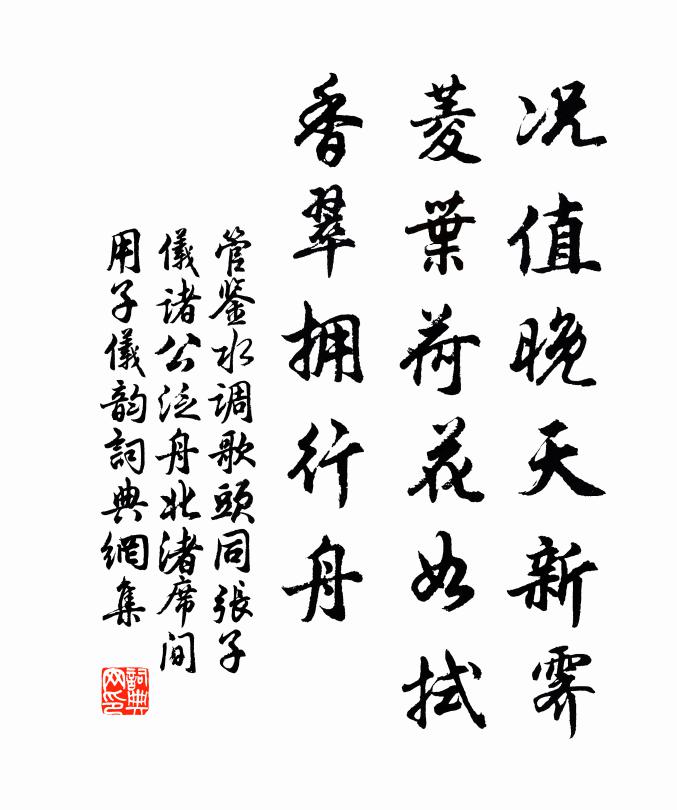 况值晚天新霁
菱葉荷花如拭
香翠拥行舟
管鉴水调歌頭同張子
儀诸公泛舟北渚席间
用子儀韵詞典網集
詞典
网印